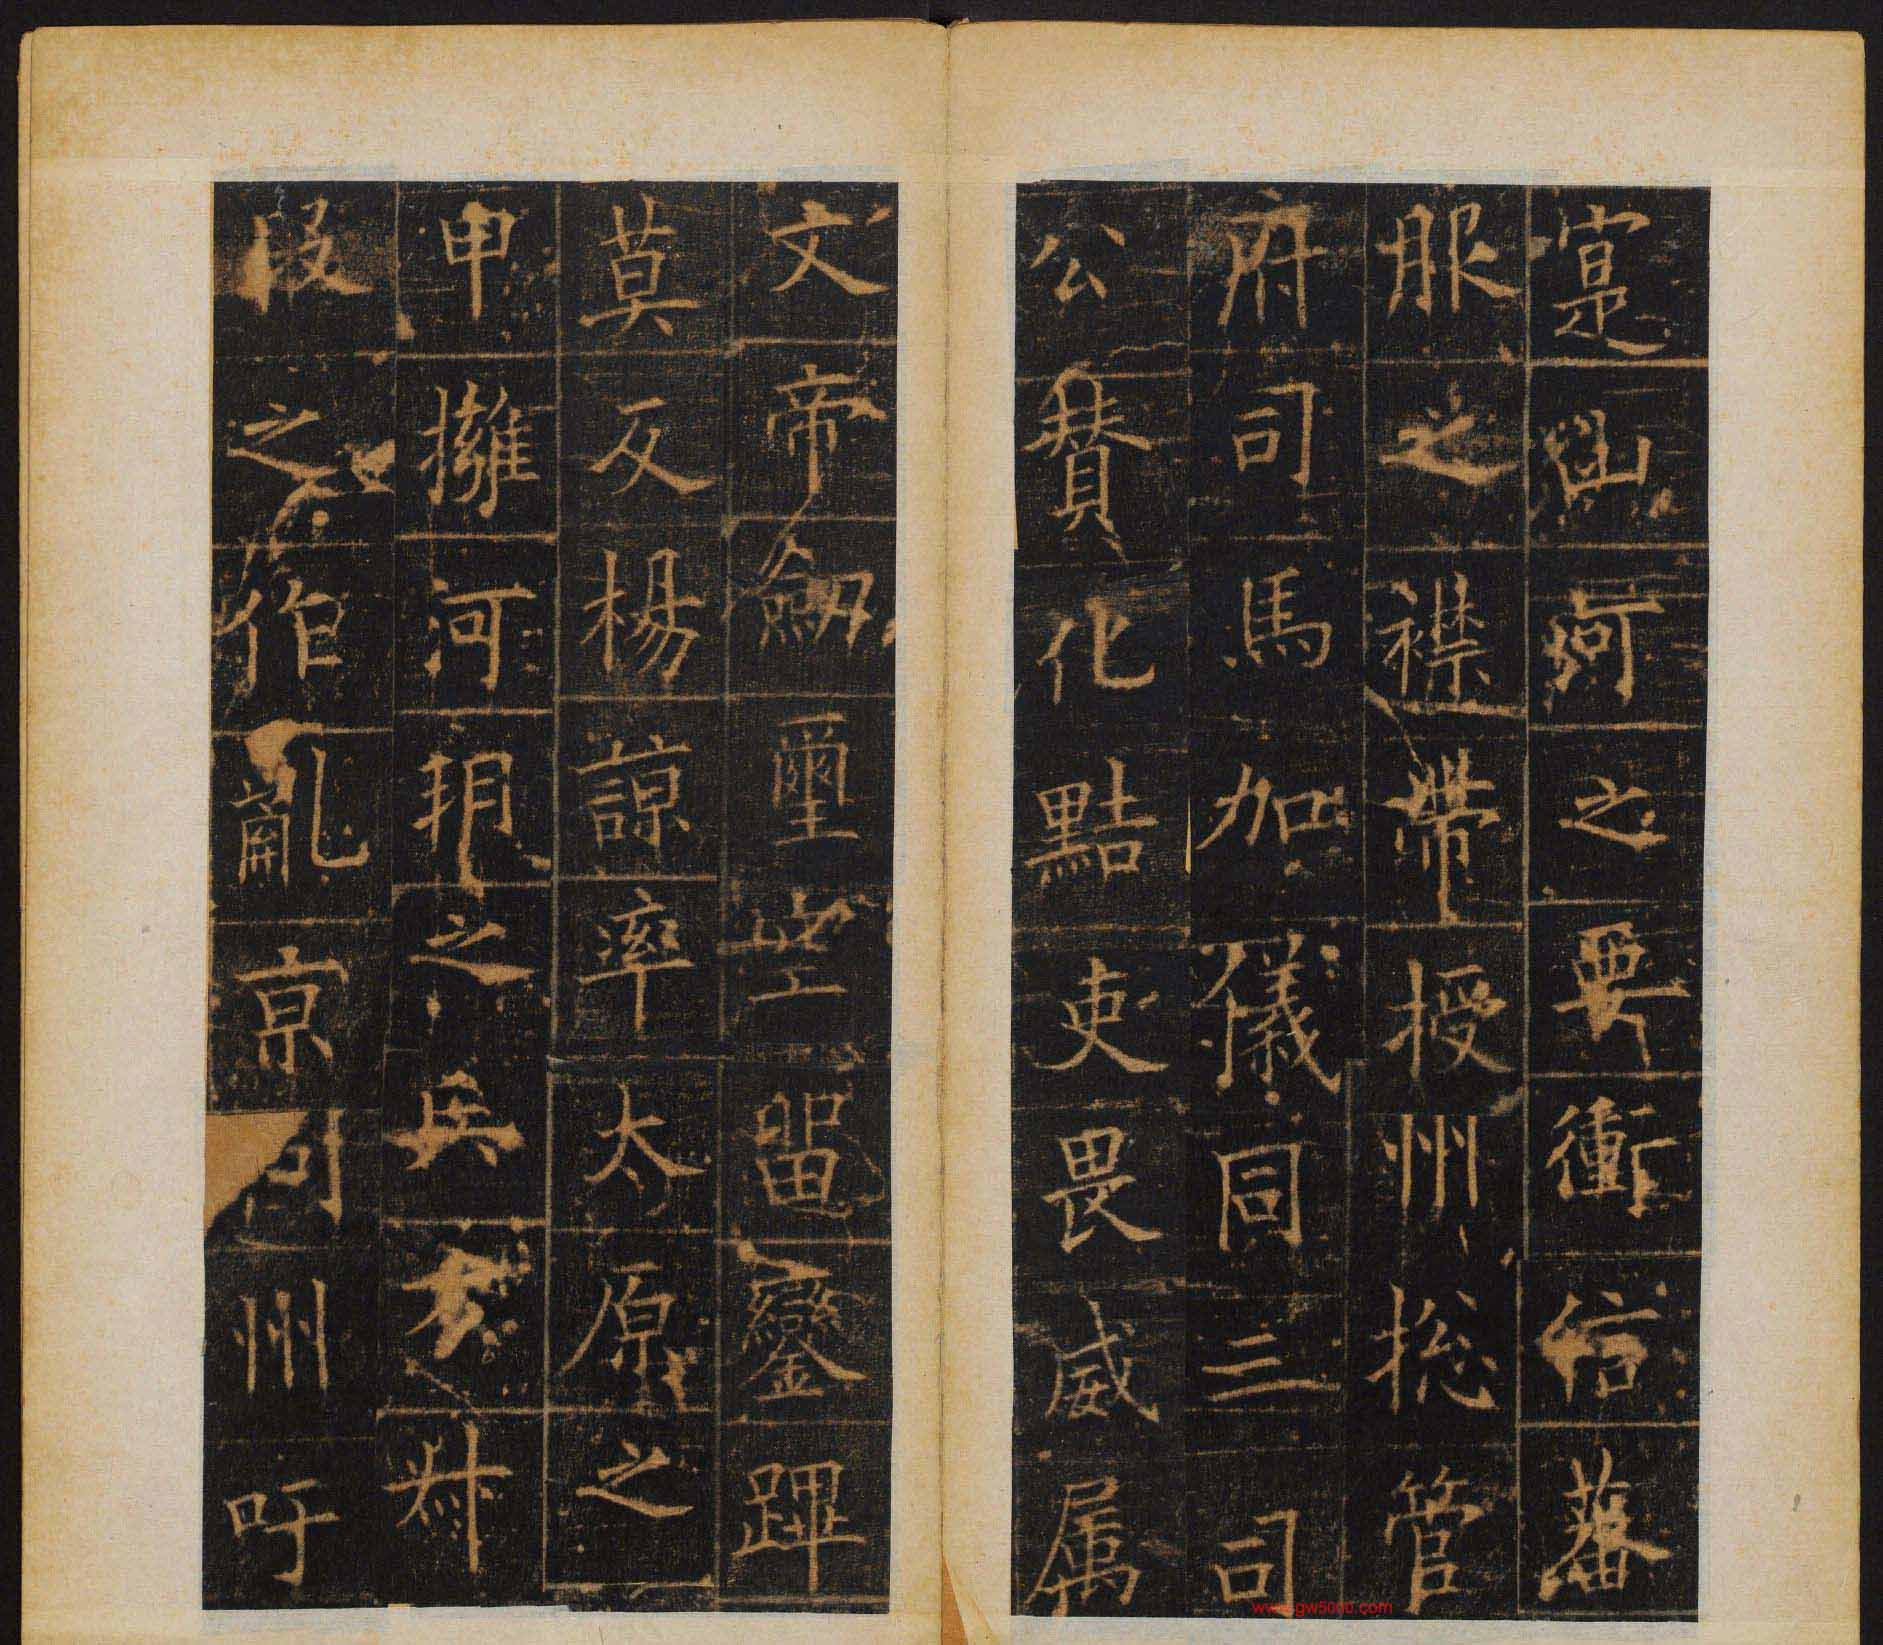 寔山河之要衝信藩
服之襟帶授州揔管
府司馬加儀同三司
公賛化黠吏畏威属
文帝劔璽空留鑾蹕
莫反楊諒率太原之
甲擁河朔之兵叔
段之作亂京州吁
www.gw5000.com